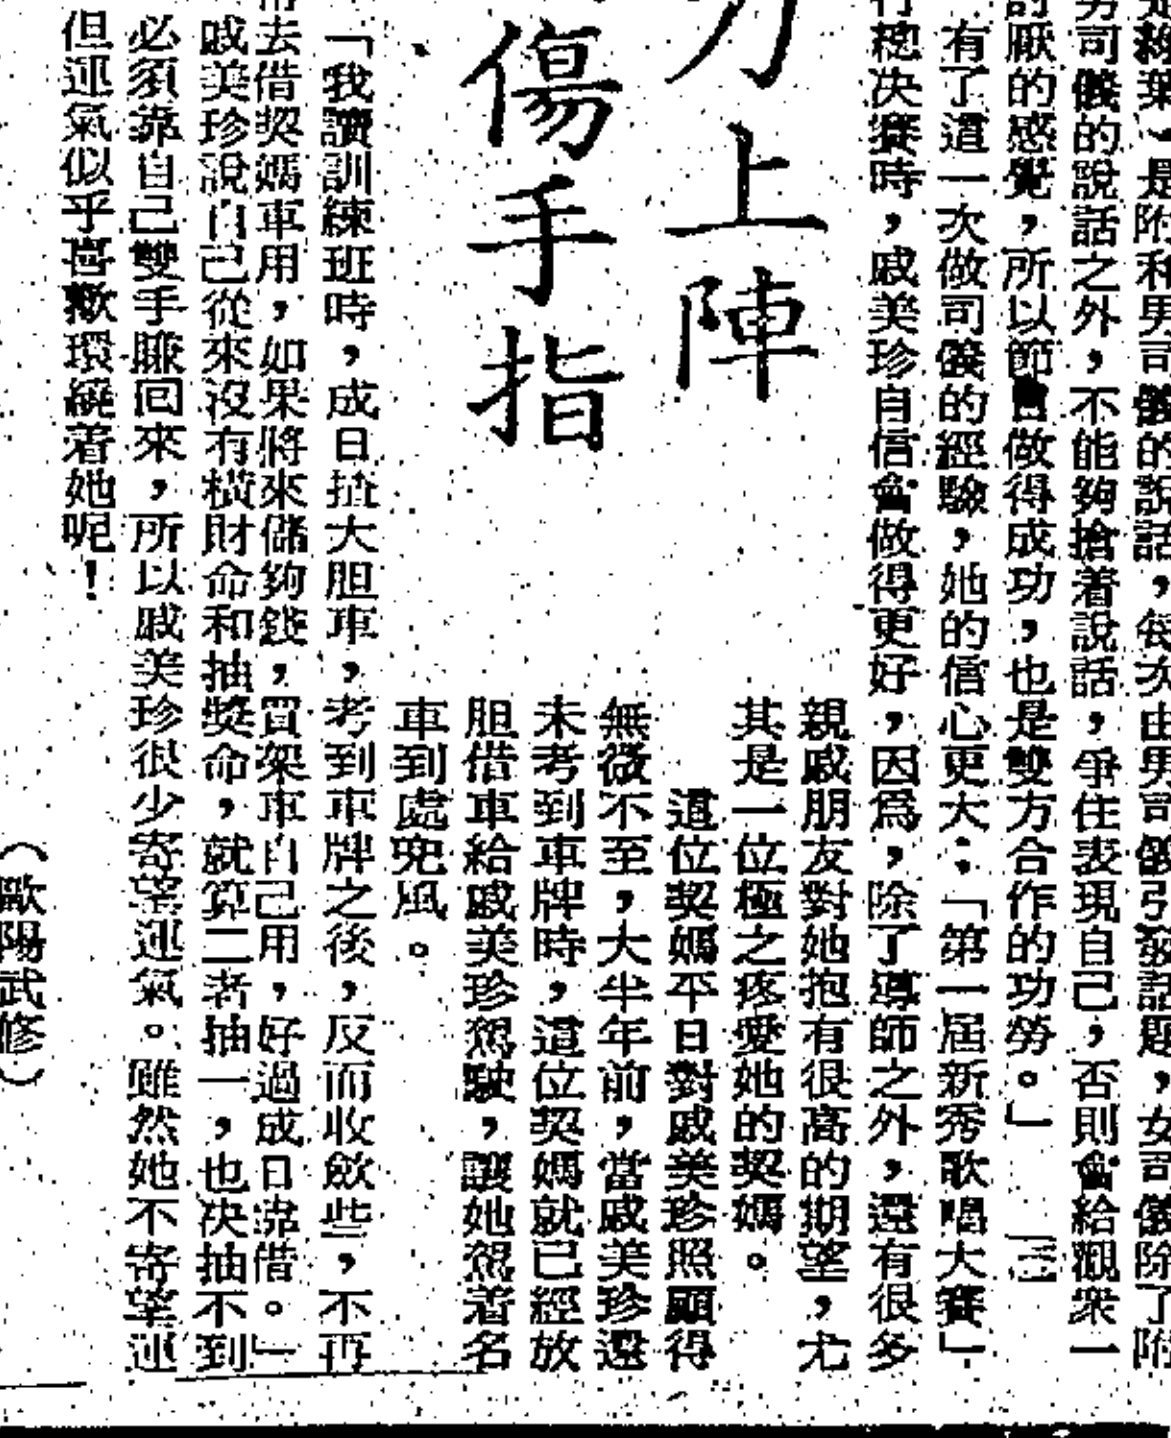 是綠葉,是附和男司儀的說話,每次由男司儀引發話題,女司儀除了附
男司儀的說話之外,不能夠搶着說話,爭住表現自己,否則會給觀衆一
討厭的感覺,所以節目做得成功,也是雙方合作的功勞。」
有了這一次做司儀的經驗,她的信心更大:「第一屆新秀歌唱大賽」
行總決賽時,戚美珍自信會做得更好,因爲,除了導師之外,還有很多
上陣
傷手指
親戚朋友對她抱有很高的期望,尤
其是一位極之疼愛她的契媽。
這位契媽平日對戚美珍照顧得
無微不至,大半年前,當戚美珍還
未考到車牌時,這位契媽就已經放
胆借車給戚美珍駕駛,讓她駕着名
車到處兜風。
「我讀訓練班時,成日揸大胆車,考到車牌之後,反而收歛些,不再
去借契媽車用,如果將來儲夠錢,買架車自己用,好過成日靠借。」
戚美珍說自己從來沒有橫財命和抽獎命,就算二者抽一,也决抽不到
必須靠自己雙手賺回來,所以戚美珍很少寄望運氣。雖然她不寄望運
但運氣似乎喜歡環繞着她呢!
(歐陽武修)